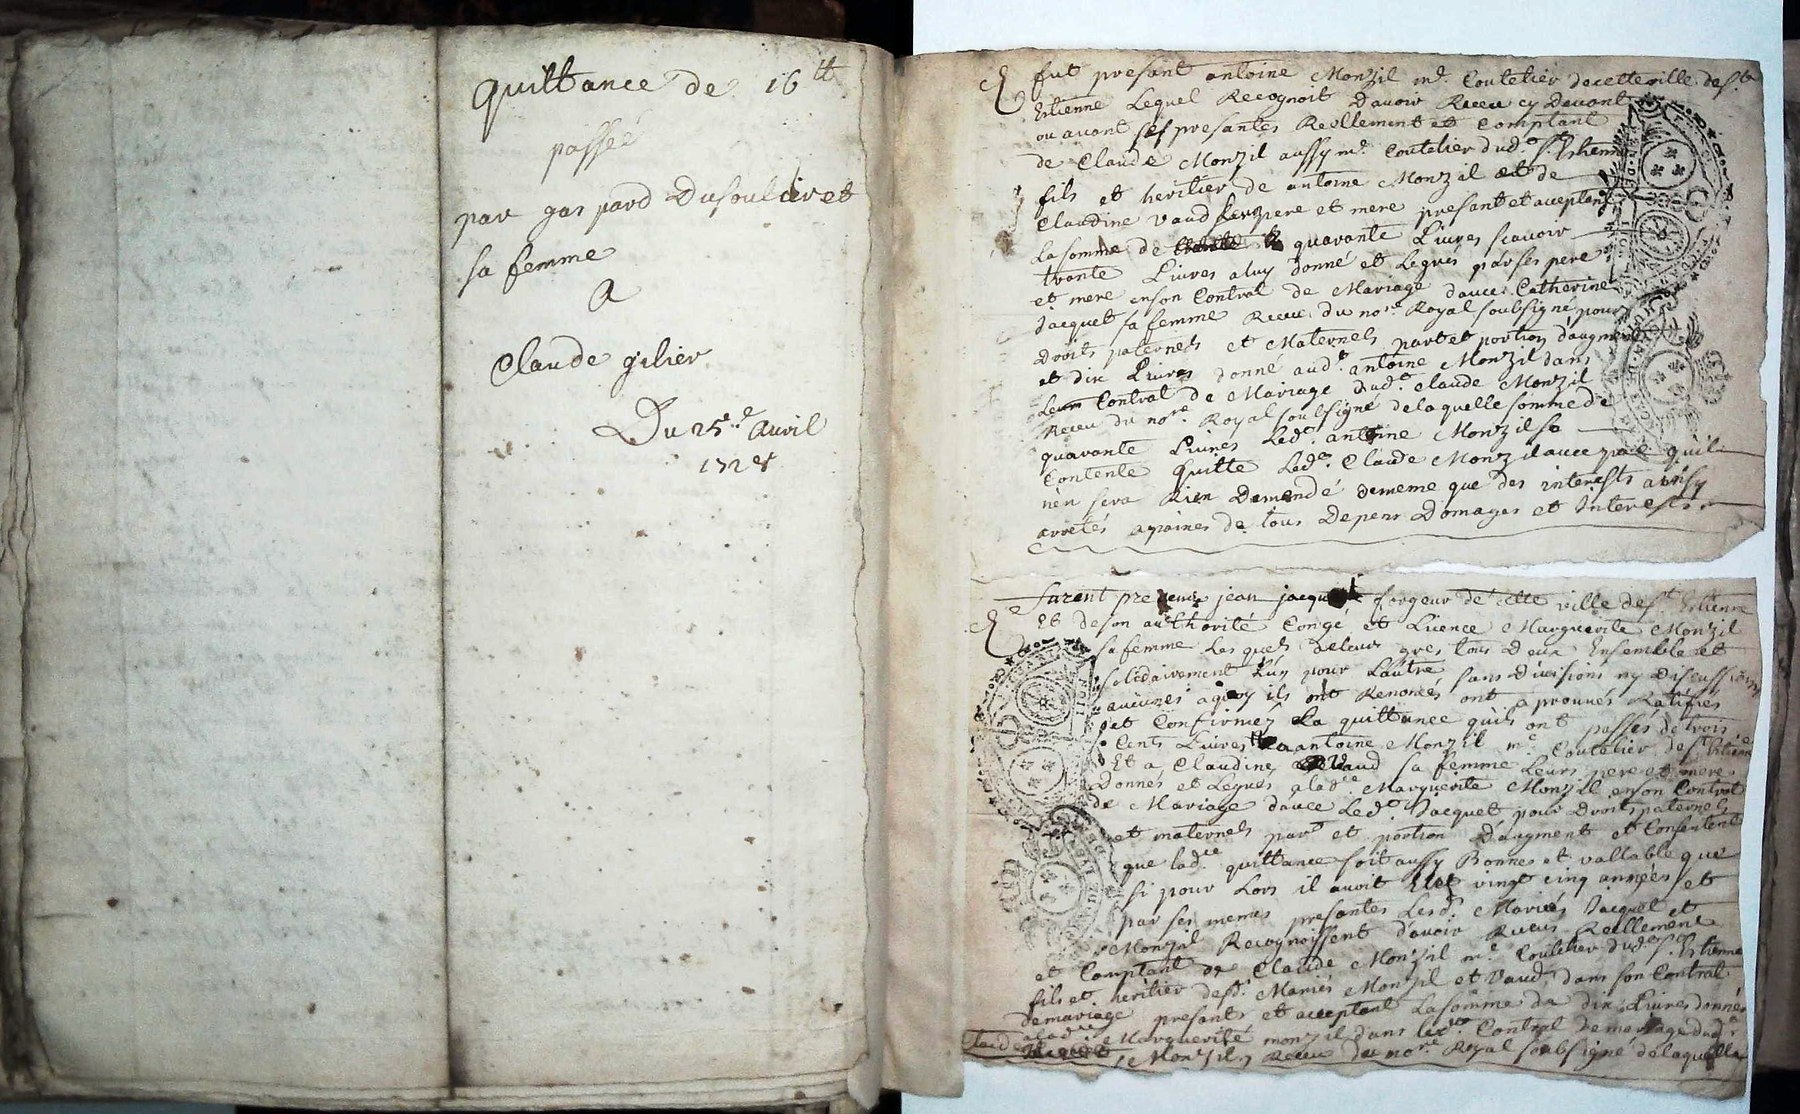 quittance de 16 lt
passée
par gaspard Dusoulier et
sa femme
A
Claude gilier
Du 25e. Avril
1728
fut present antoine Monzil me. Coutelier de cette ville de st.
Etienne Lequel Recognoit Davoir Receu cy Devant
ou avant ses presantes Reellement et Comptant
de Claude Monzil aussy me. Coutelier dud. st. Estienne
fils et heritier de antoine Monzil et de
Claudine Vaud pere et mere presant et aceptant
La somme de quarante Livres scavoir
trante Livres a luy donné et Legués par ses pere
et mere en son Contrat de Mariage davec Catherine
Jacquet sa femme Receu du nore. Royal soubsigné pour
Droits paternels et Maternels part et portion daugment
et dix Livres donné aud. antoine Monzil dans
Contrat de Mariage dud. Claude Monzil
Receu du nore. Royal soubsigné de laquelle somme de
quarante Livres Led. antoine Monzil se
Contente quitte Led. Claude Monzil avec pact quil
nen sera Rien Demandé de meme que des interests
arretés a paines de tous Depens Domages et Interests
furent presens jean jacquet forgeur de cette ville de st. Estienne
Et de son authorité Congé et Licence Marguerite Monzil
sa femme Lesquels de leurs gres tous Deux Ensemble et
solidairement Lun pour Lautre sans Divisions ny Discussions
aucunes a quoy ils ont Renoncés ont aprouvés Ratifiés
et Confirmés La quittance quils ont passés de trois
Cents Livres a antoine Monzil me. Coutelier de st. Etienne
Et a Claudine Vaud sa femme Leurs pere et mere
Donnés et Legués a lad. Marguerite Monzil en son Contrat
de Mariage davec Led. Jacquet pour Droits paternels
et maternels part et portion Daugment et Consentent
que lad. quittance soit aussy Bonne et vallable que
si pour Lors il avoit vingt cinq années et
par ses memes presantes Lesd. Mariés Jacquet et
Monzil Recognoissent davoir Receus Reellement
et Comptant de Claude Monzil me. Coutelier dud. st. Estienne
fils et heritier desd. Mariés Monzil et Vaud dans son Contrat
de mariage presant et acceptant La somme de dix Livres donnés
a lad. Marguerite monzil dans led. Contrat de mariage dud.
Monzil Receu du nore. Royal soubsigné de laquelle